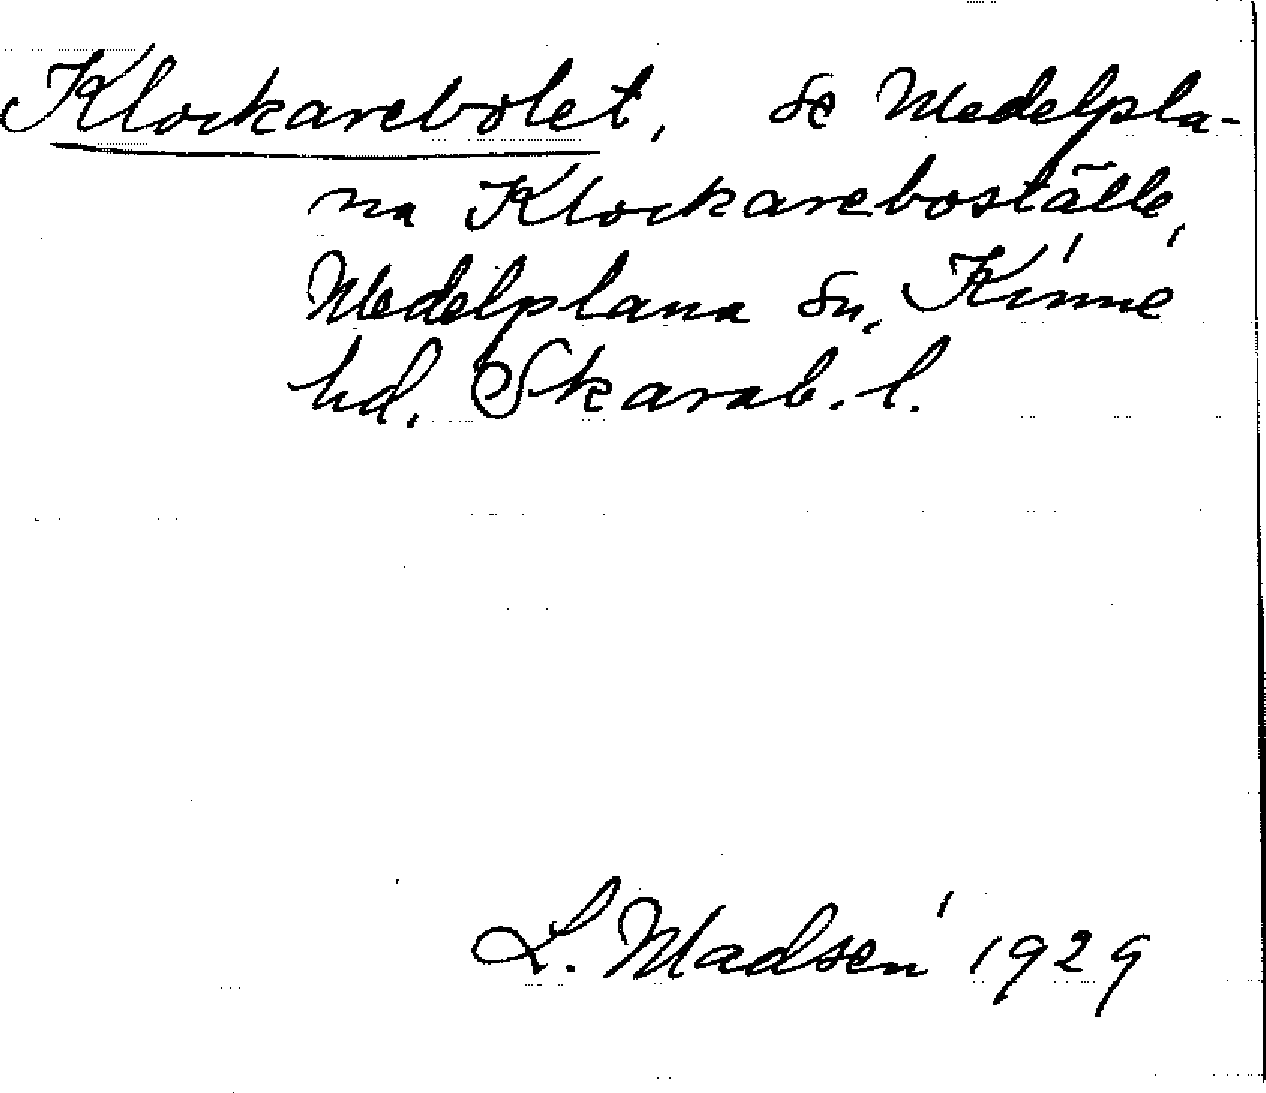 Klockarebolet, se Medelpla-
na Klockareboställe,
Medelplana sn, Kinne
hd. Skarab. l.
L. Madsén 1929